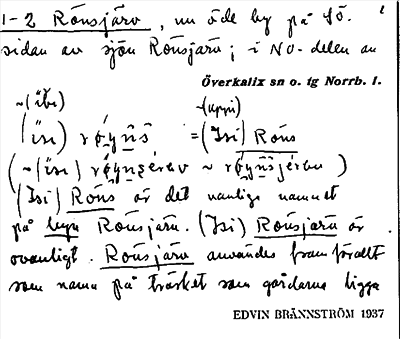 1-2 Rönsjärv, nu öde by på SÖ.
sidan av sjön Rönsjärv; i NO-delen av
Överkalix sn o. tg Norrb. l.
~(ibe) ~(uppi)
(isi) röyns = (Isi) Röns
(~(isi) röynsérev ~ röynsjérev)
(Isi) Röns är det vanliga namnet
på byn Rönsjärv. (Isi) Rönsjärv är
ovanligt. Rönsjärv användes framförallt
som namn på träsket som gårdarna ligga
EDVIN BRÄNNSTRÖM 1937